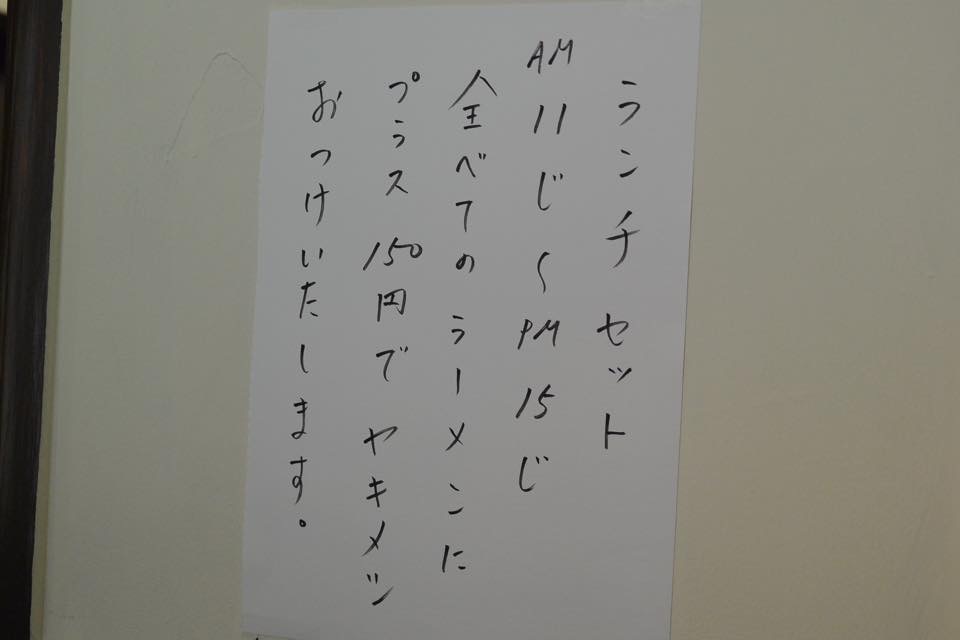 ランチセット
AM11じ〜PM15じ
全べてのラーメンに
プラス150円でヤキメシ
おつけいたします。